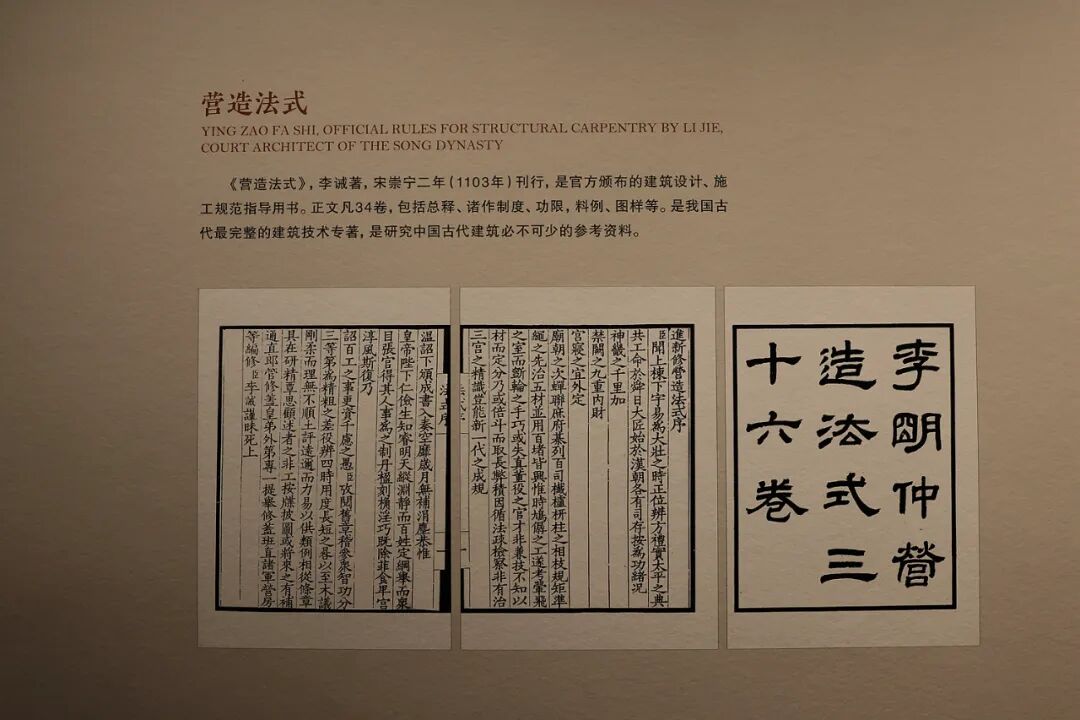 营造法式
YING ZAO FA SHI, OFFICIAL RULES FOR STRUCTURAL CARPENTRY BY LI JIE,
COURT ARCHITECT OF THE SONG DYNASTY
《营造法式》，李诫著，宋崇宁二年（1103年）刊行，是官方颁布的建筑设计、施
工规范指导用书。正文凡34卷，包括总释、诸作制度、功限，料例、图样等。是我国古
代最完整的建筑技术专著，是研究中国古代建筑必不可少的参考资料。
李朙仲營
造法式三
十六卷
進新修營造法式序
臣聞上棟下宇易爲大壯之時正位辨方禮實太平之典
共工命於舜日大匠始於漢朝各有司存按爲功緒況
神畿之千里加
禁闕之九重内財
宮寢之宜外定
廟朝之次蟬聯庶府棊列百司櫼櫨枅柱之相枝規矩準
繩之先治五材並用百堵皆興惟時鳩僝之工遂考翬飛
之室而斲輪之手巧或失真董役之官才非兼技不知以
材而定分乃或倍斗而取長弊積因循法疎檢察非有治
三宮之精識豈能新一代之成規
法式序
溫詔下頒成書入奏空靡歲月無補涓塵恭惟
皇帝陛下仁儉生知睿明天縱淵靜而百姓定綱舉而衆
目張官得其人事爲之制丹楹刻桷淫巧既除菲食卑宮
淳風斯復乃
詔百工之事更資千慮之愚臣攷閱舊章稽參衆智功分
三等第爲精粗之差役辨四時用度長短之晷以至木議
剛柔而理無不順土評遠邇而力易以供類例相從條章
具在研精覃思顧述者之非工按牒披圖或將來之有補
通直郎管修蓋皇弟外第專一提舉修蓋班直諸軍營房
等編修臣李誡謹昧死上